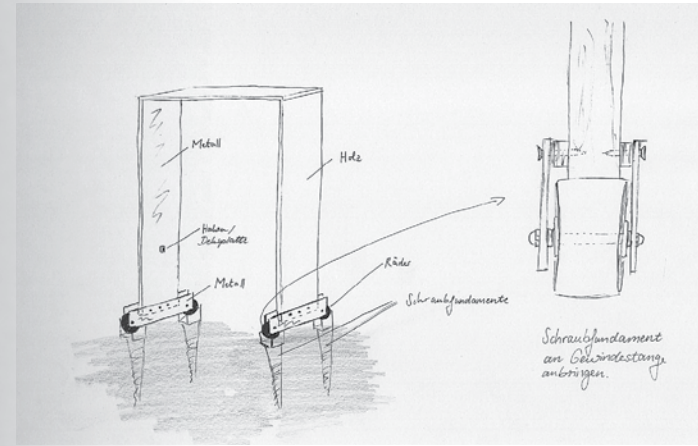 Metall
Holz
Haken/
Metall
Räder
Schraubfundamente
Schraubfundament
an Gewindestange
anbringen.